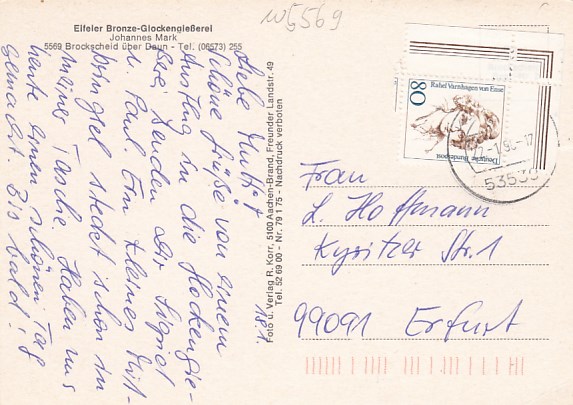 W5569
Eifeler Bronze-Glockengießerei
Johannes Mark
5569 Brockscheid über Daun - Tel. (06573) 255
Liebe Mutti!
Schöne Grüße von einem
Ausflug in die Glockengie-
ßerei senden Dir Sigrid
u. Paul. Ein kleines Mit-
bringsel steckt schon in
meiner Tasche. Haben uns
heute einen schönen Tag
gemacht. Bis bald!
18.1.
Foto u. Verlag R. Korr, 5100 Aachen-Brand, Freunder Landstr. 49
Tel. 52 69 00 - Nr. 79 1 75 - Nachdruck verboten
Rahel Varnhagen von Ense
80
Deutsche Bundespost
Frau
L. Hoffmann
Kyritzer Str. 1
99091 Erfurt